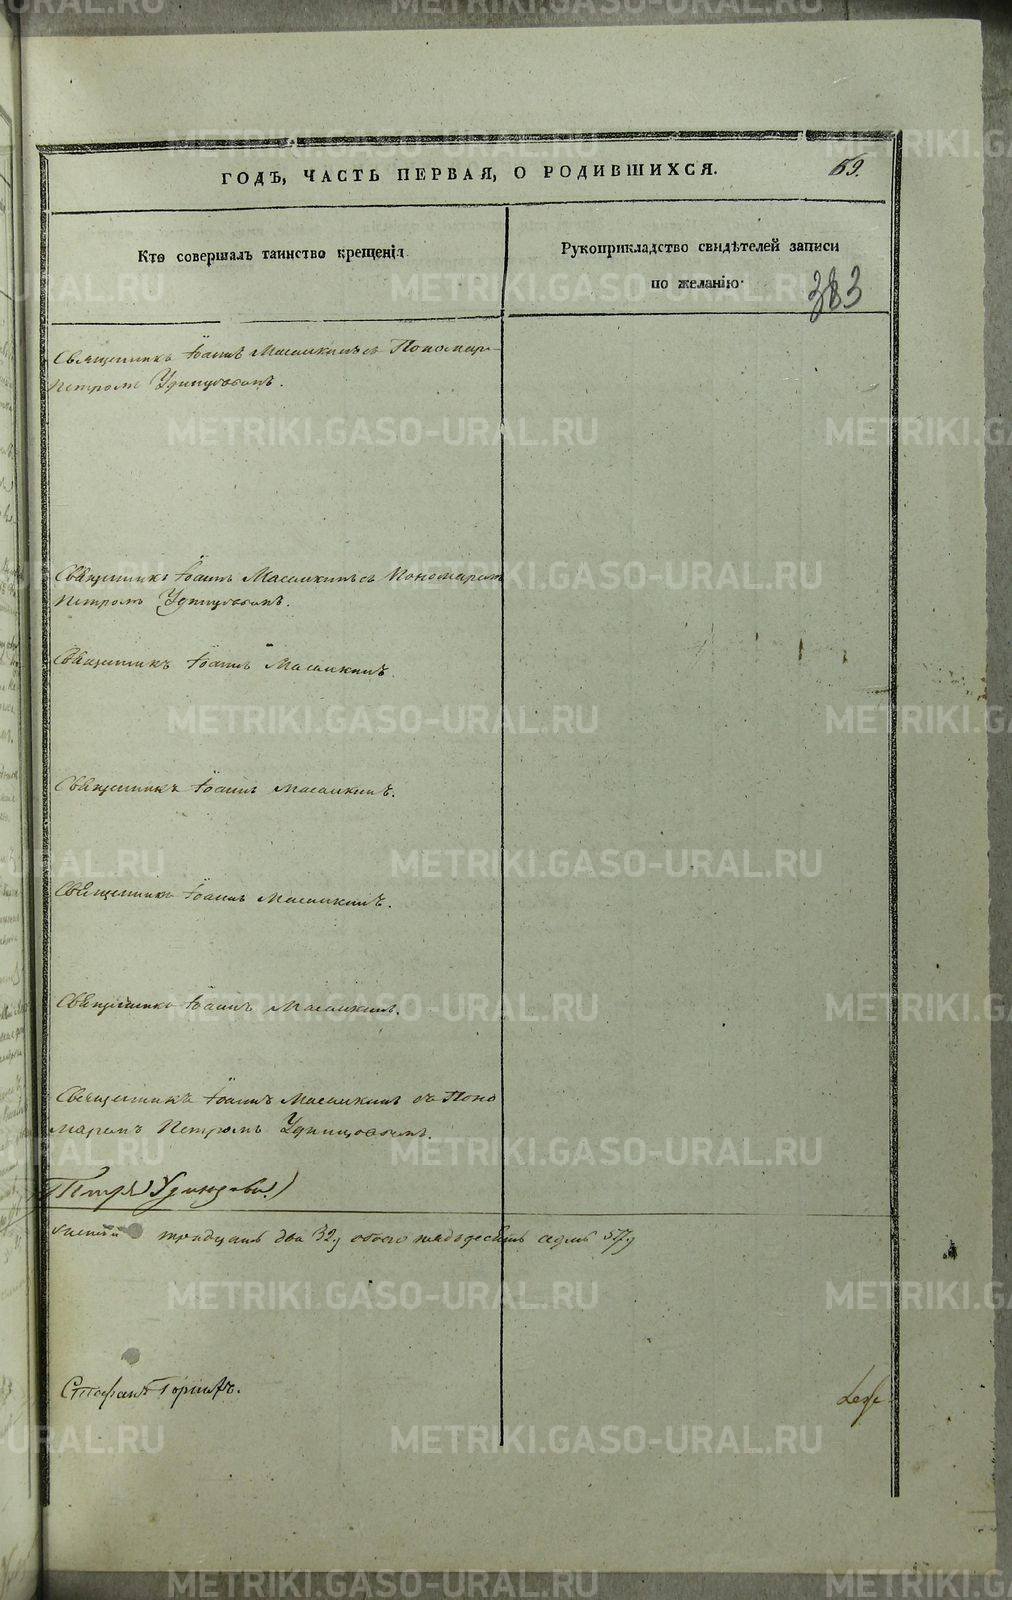 ГОДЪ, ЧАСТЬ ПЕРВАЯ, О РОДИВШИХСЯ.
69.
Кто совершалъ таинство крещенія.
Рукоприкладство свидѣтелей записи
по желанію.
383
Священникъ Іоаннъ Масалкинъ съ Пономаре
Петромъ Удинцовымъ.
Священникъ Іоаннъ Масалкинъ съ Пономаремъ
Петромъ Удинцовымъ.
Священникъ Іоаннъ Масалкинъ.
Священникъ Іоаннъ Масалкинъ.
Священникъ Іоаннъ Масалкинъ.
Священникъ Іоаннъ Масалкинъ.
Священникъ Іоаннъ Масалкинъ съ Поно
маремъ Петромъ Удинцовымъ.
Петръ Удинцовъ
тридцать два 32, обоего пятьдесятъ седмь 57,
Стефанъ
METRIKI.GASO-URAL.RU